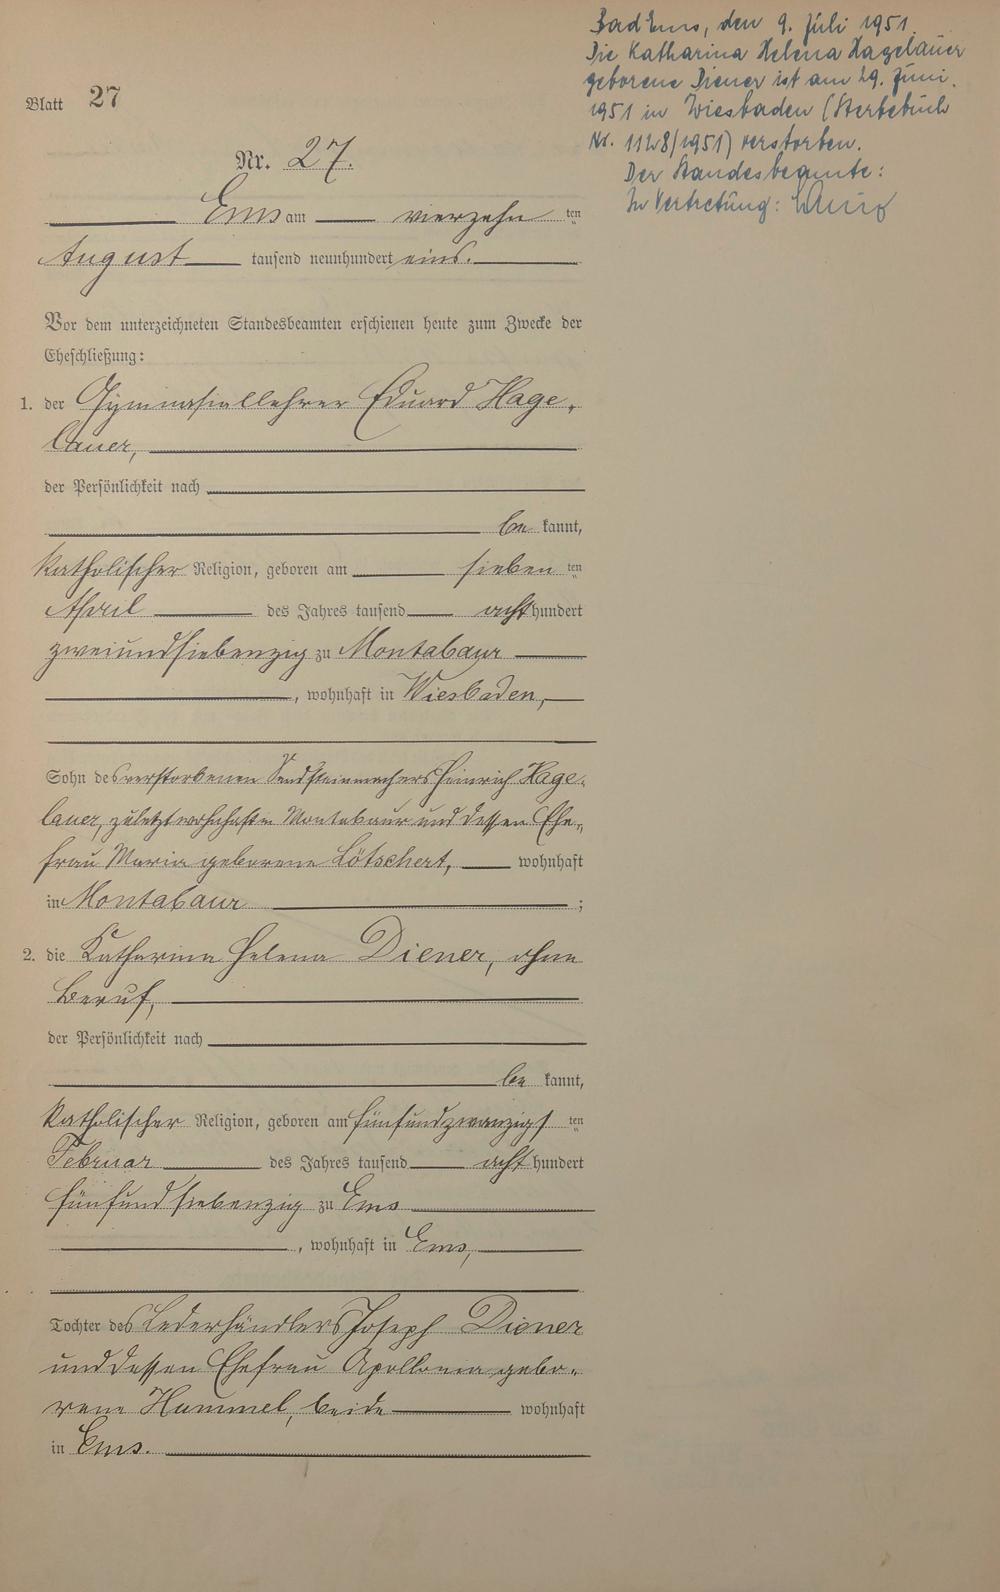 Bad Ems, den 9. Juli 1951.
Die Katharina Helena Hagelauer
geborene Diener ist am 29. Juni
1951 in Wiesbaden (Sterbebuch
Nr. 1128/1951) verstorben.
Der Standesbeamte:
In Vertretung:
Blatt 27
Nr. 27.
Ems am vierzehnten
August tausend neunhundert eins.
Vor dem unterzeichneten Standesbeamten erschienen heute zum Zwecke der
Eheschließung:
1. der Gymnasiallehrer Eduard Hage-
lauer,
der Persönlichkeit nach
bekannt,
katholischer Religion, geboren am siebenten
April des Jahres tausend achthundert
zweiundsiebenzig zu Montabaur
, wohnhaft in Wiesbaden,
Sohn des verstorbenen Heinrich Hage-
lauer, zuletzt wohnhaft in Montabaur und dessen Ehe-
frau Maria geborene Lötschert, wohnhaft
in Montabaur ;
2. die Katharina Helena Diener, ohne
Beruf,
der Persönlichkeit nach
bekannt,
katholischer Religion, geboren am fünfundzwanzigsten
Februar des Jahres tausend achthundert
fünfundsiebenzig zu Ems
, wohnhaft in Ems,
Tochter des Lederhändlers Joseph Diener
und dessen Ehefrau Apollonia gebo-
rene Hummel, beide wohnhaft
in Ems.